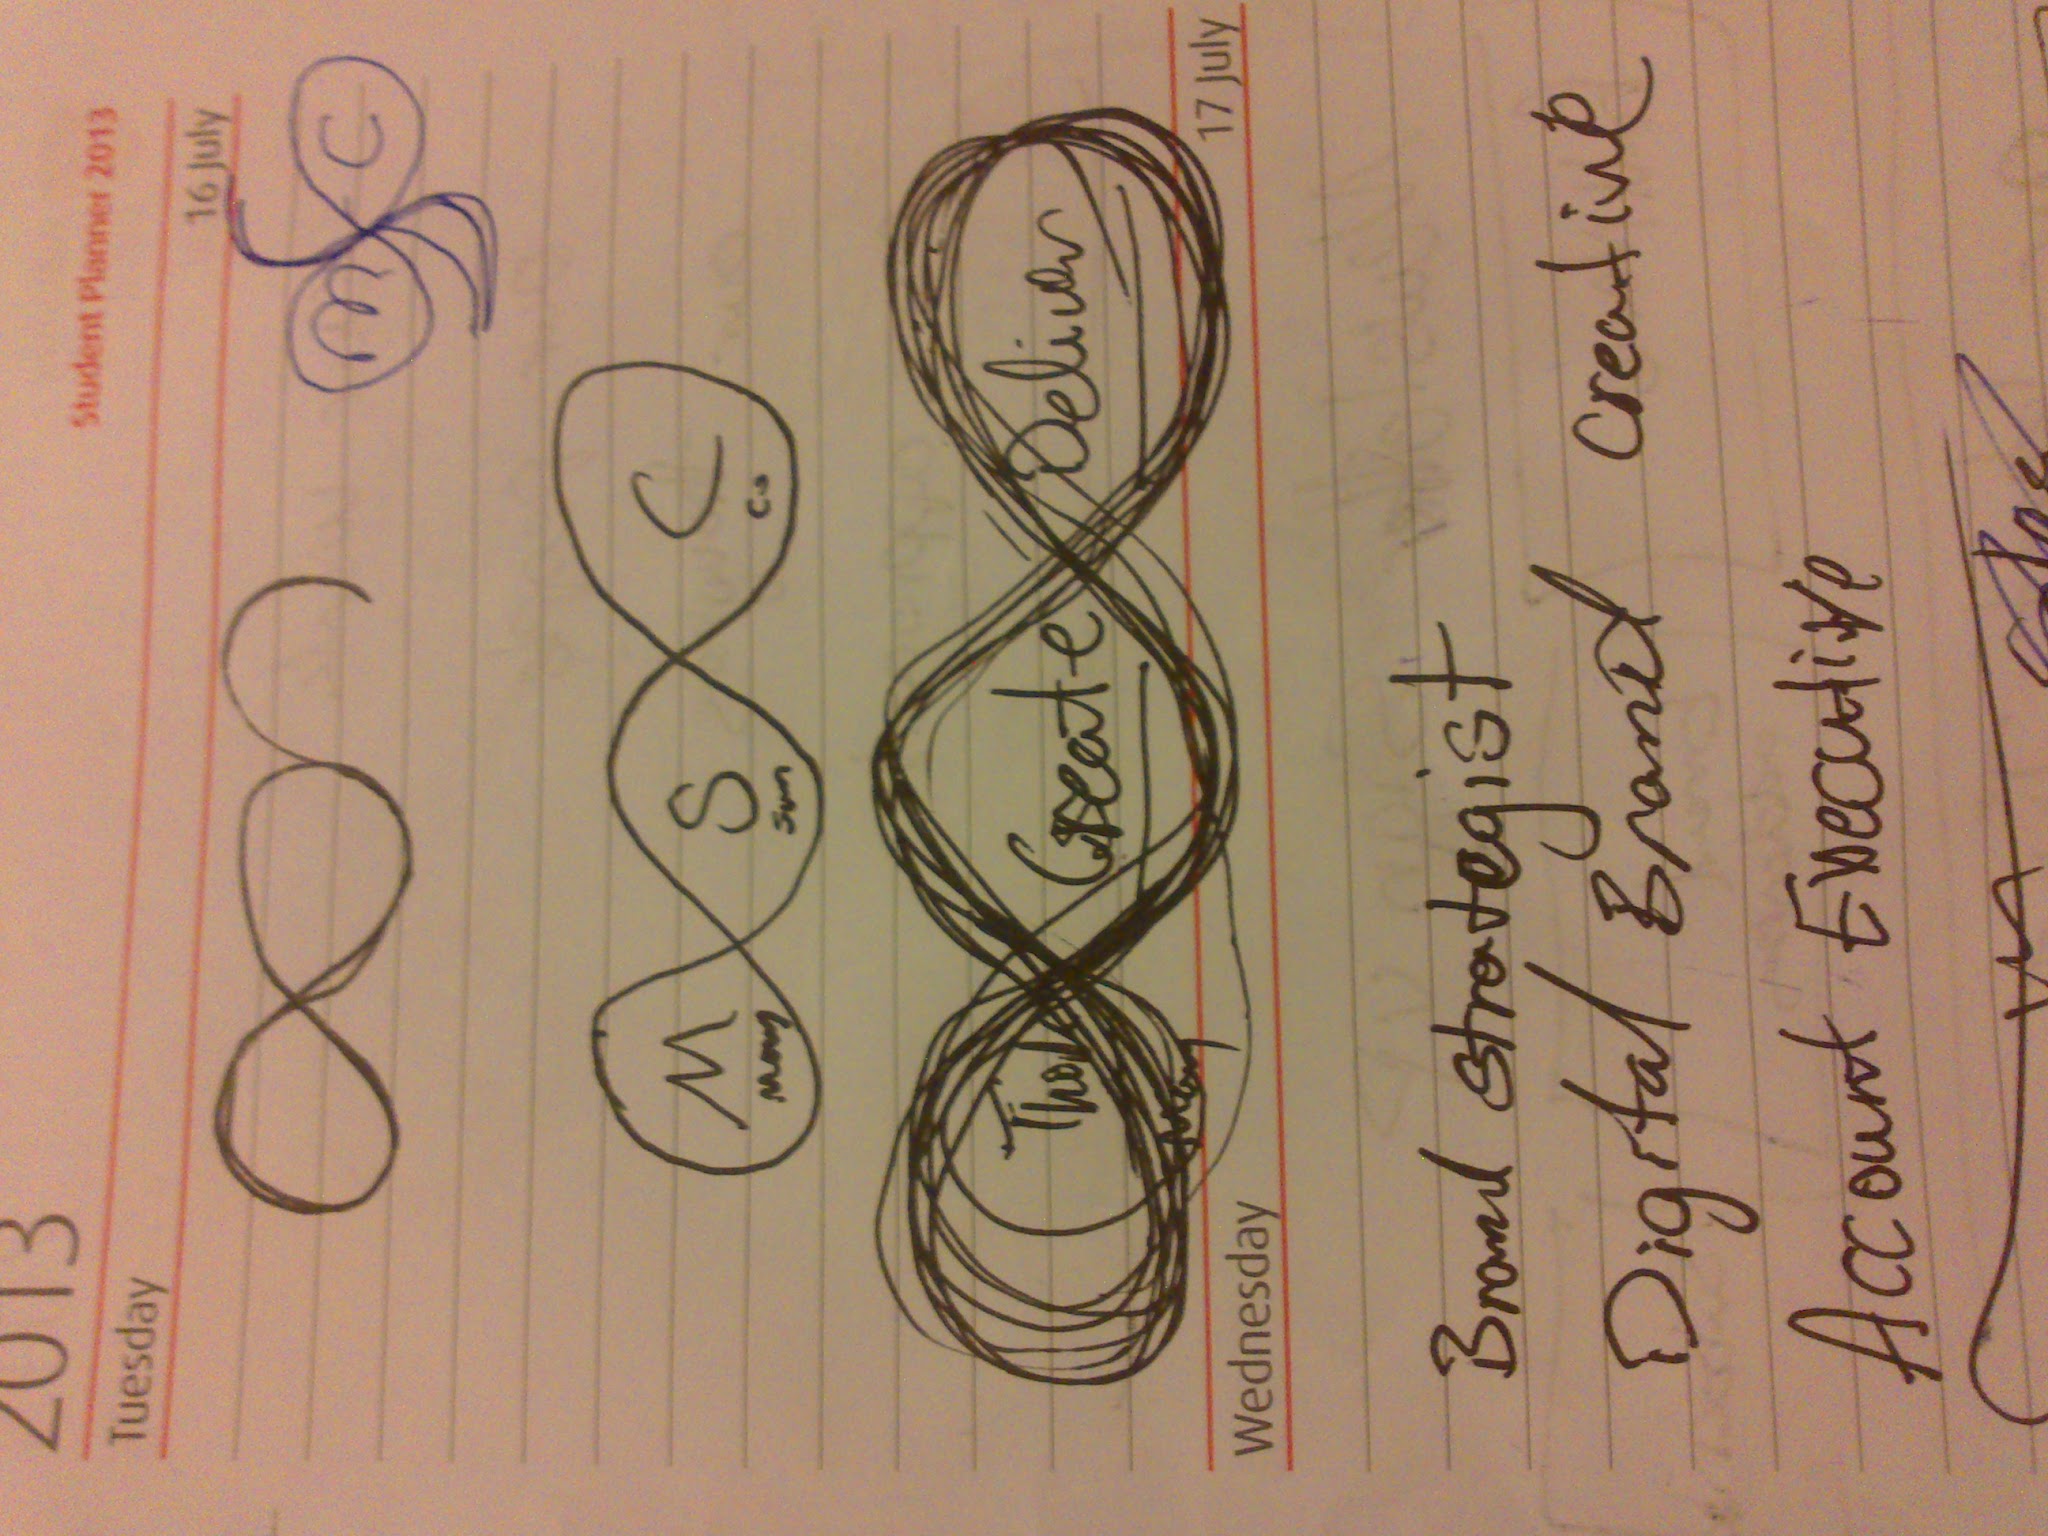 2013
Student Planner 2013
Tuesday
16 July
M C
M S C
Many Sun Co
Think Create Deliver
Many
Wednesday
17 July
Brand strategist
Digital Brand creative
Account Executive